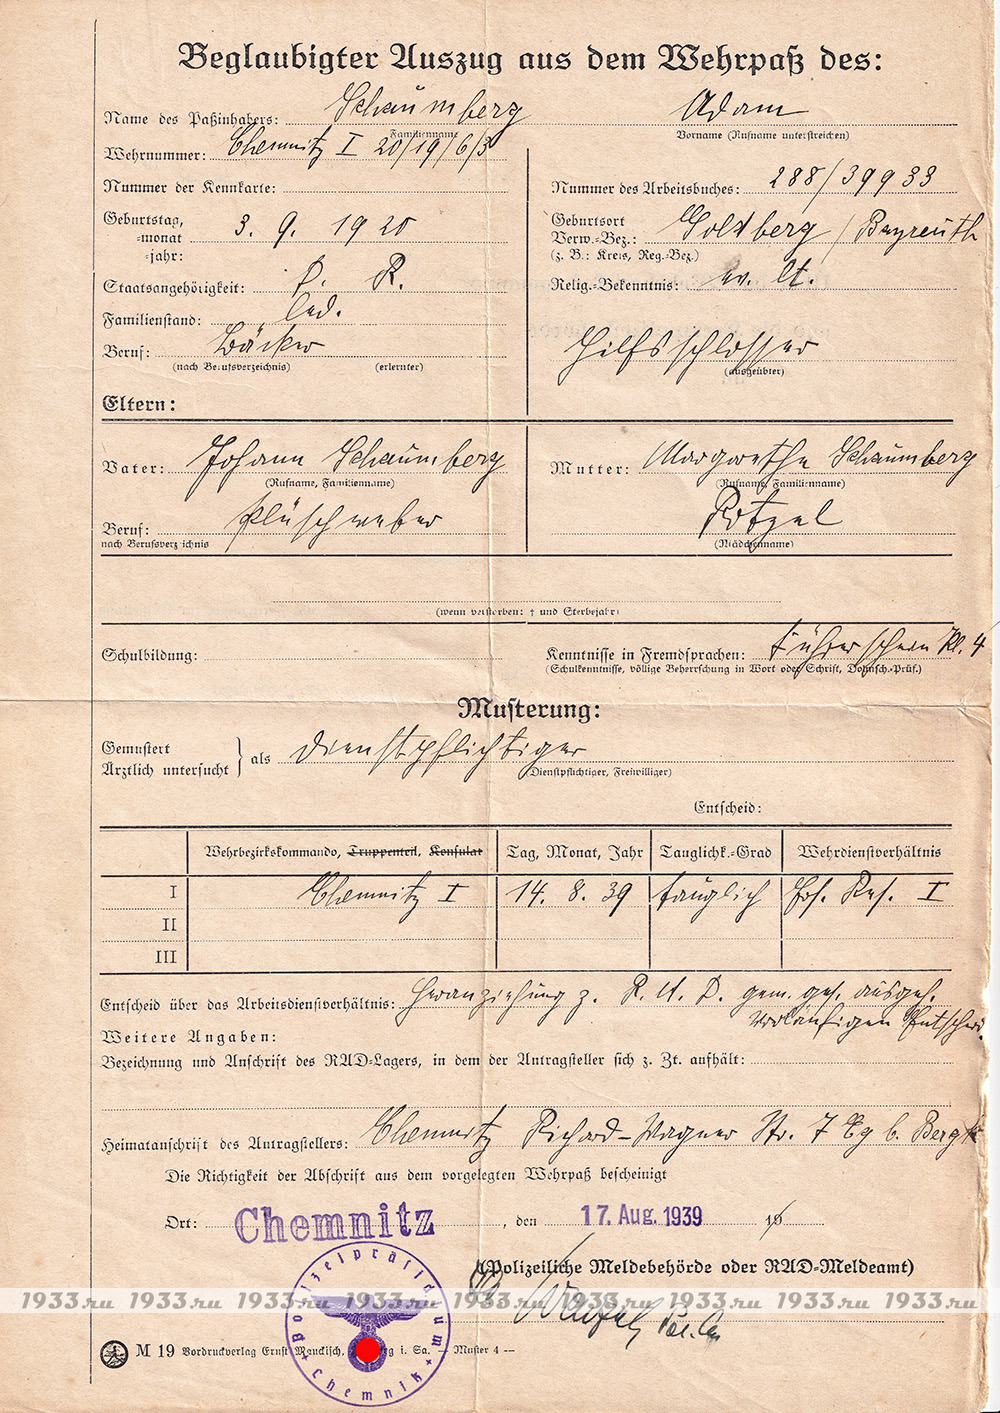 Beglaubigter Auszug aus dem Wehrpaß des:
Name des Paßinhabers: Schaumberg Adam
Familienname Vorname (Rufname unterstreichen)
Wehrnummer: Chemnitz I 20/19/6/3
Nummer der Kennkarte: Nummer des Arbeitsbuches: 288/39933
Geburtstag, -monat -jahr: 3. 9. 1920
Geburtsort Verw.-Bez.: Goldberg / Bayreuth
(z. B.: Kreis, Reg.-Bez.)
Staatsangehörigkeit: D. R. Relig.-Bekenntnis: ev. lt.
Familienstand: led.
Beruf: Bäcker Hilfsschlosser
(nach Berufsverzeichnis) (erlernter) (ausgeübter)
Eltern:
Vater: Johann Schaumberg Mutter: Margarethe Schaumberg
(Rufname, Familienname) (Rufname, Familienname)
Beruf: Plüschweber
nach Berufsverzeichnis (Mädchenname)
(wenn verstorben: † und Sterbejahr)
Schulbildung: Kenntnisse in Fremdsprachen: Führerschein Kl. 4
(Schulkenntnisse, völlige Beherrschung in Wort oder Schrift, Dolmsch.-Prüf.)
Musterung:
Gemustert
Ärztlich untersucht } als Dienstpflichtiger
(Dienstpflichtiger, Freiwilliger)
Entscheid:
Wehrbezirkskommando, Truppenteil, Konsulat Tag, Monat, Jahr Tauglichk.-Grad Wehrdienstverhältnis
I Chemnitz I 14. 8. 39 tauglich Ers. Res. I
II
III
Entscheid über das Arbeitsdienstverhältnis: Heranziehung z. R. A. D. gem. ges. ausgeh.
vorläufigen Entscheid.
Weitere Angaben:
Bezeichnung und Anschrift des RAD-Lagers, in dem der Antragsteller sich z. Zt. aufhält:
Heimatanschrift des Antragstellers: Chemnitz Richard-Wagner Str. 7 b. Berg
Die Richtigkeit der Abschrift aus dem vorgelegten Wehrpaß bescheinigt
Ort: Chemnitz, den 17. Aug. 1939 19
(Polizeiliche Meldebehörde oder RAD-Meldeamt)
Polizeipräsidium Chemnitz
1933.ru 1933.ru 1933.ru 1933.ru 1933.ru 1933.ru 1933.ru 1933.ru 1933.ru
M 19 Vordruckverlag Ernst Mauckisch, i. Sa. — Muster 4 —